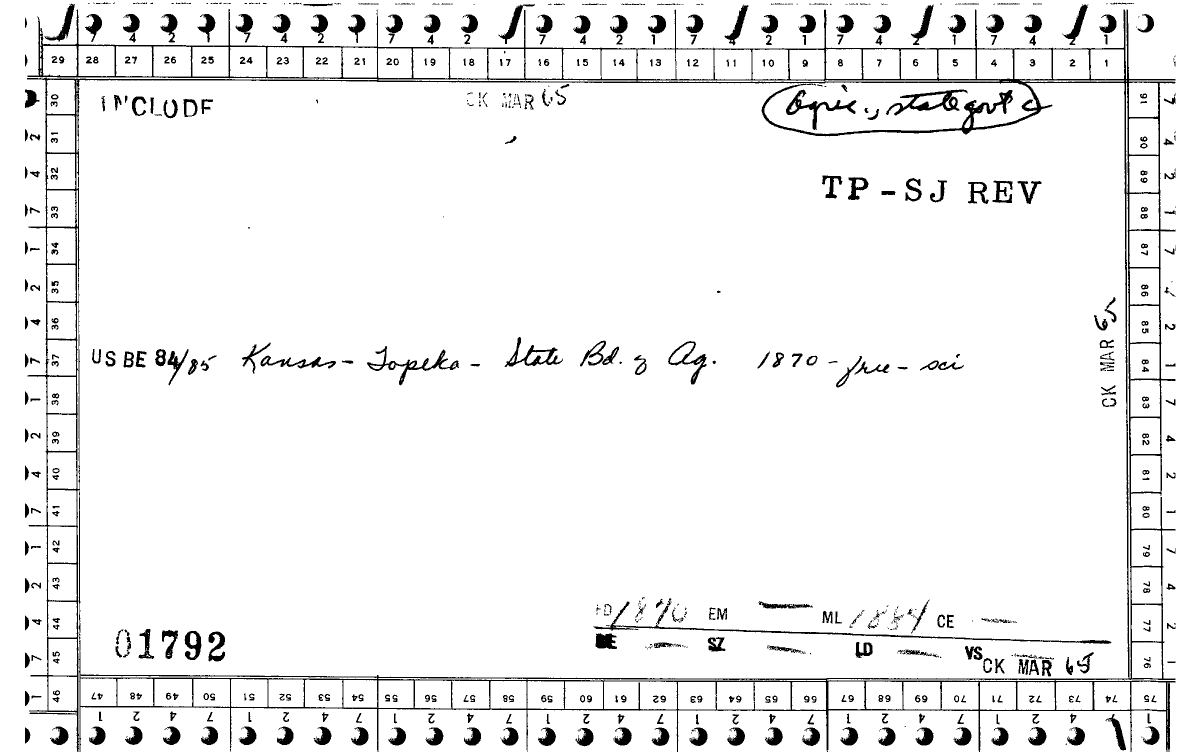 7 4 2 1 7 4 2 1 7 4 2 1 7 4 2 1 7 4 2 1 7 4 2 1 7 4 2 1
29 28 27 26 25 24 23 22 21 20 19 18 17 16 15 14 13 12 11 10 9 8 7 6 5 4 3 2 1
INCLUDE CK MAR 65 Agric., state govt
TP-SJ REV
US BE 84/85 Kansas - Topeka - State Bd. of Ag. 1870 - free - sci
CK MAR 65
FD 1870 EM — ML 1884 CE —
BE — SZ — LD — VS —
01792
CK MAR 65
30 31 32 33 34 35 36 37 38 39 40 41 42 43 44 45 46
91 90 89 88 87 86 85 84 83 82 81 80 79 78 77 76
47 48 49 50 51 52 53 54 55 56 57 58 59 60 61 62 63 64 65 66 67 68 69 70 71 72 73 74 75
1 2 4 7 1 2 4 7 1 2 4 7 1 2 4 7 1 2 4 7 1 2 4 7 1 2 4